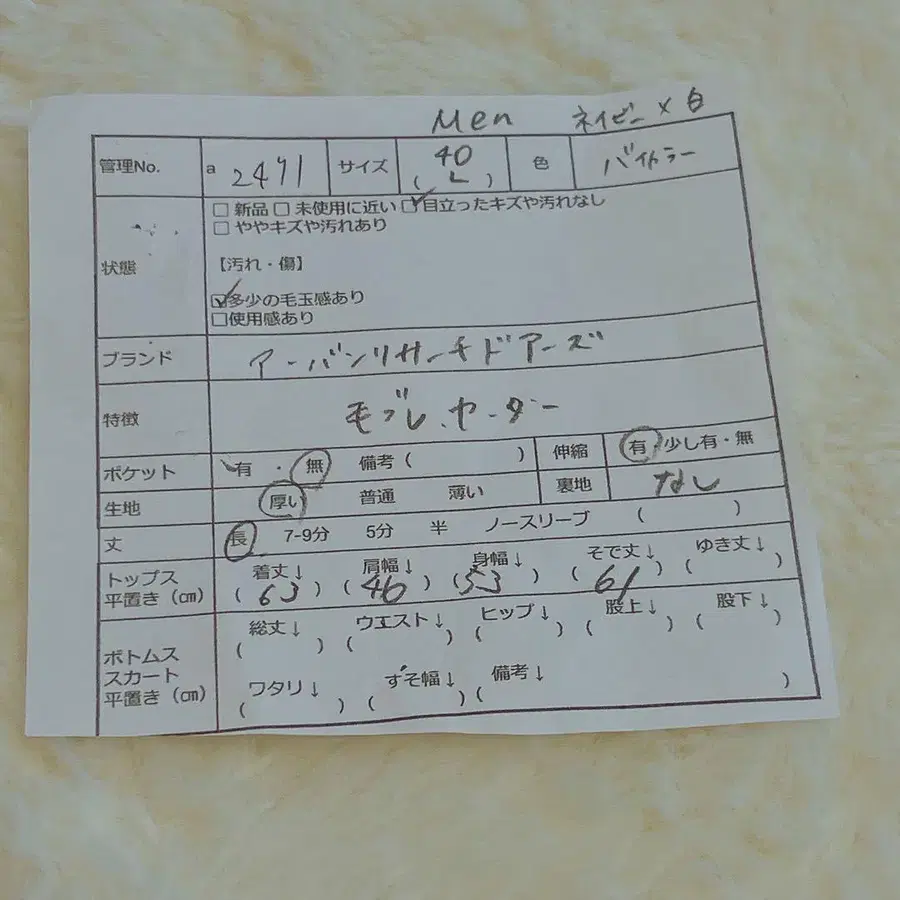 Men ネイビー×白
管理No. a 2471 サイズ 40 (L) 色 バイカラー
□ 新品 □ 未使用に近い ☑目立ったキズや汚れなし
□ ややキズや汚れあり
状態
【汚れ・傷】
☑多少の毛玉感あり
□使用感あり
ブランド アーバンリサーチドアーズ
特徴 モブレ.ヤーダー
ポケット 有 ・ 無 備考 ( ) 伸縮 有・少し有・無
生地 厚い 普通 薄い 裏地 なし
丈 長 7-9分 5分 半 ノースリーブ ( )
トップス 平置き (㎝)
着丈↓ 肩幅↓ 身幅↓ そで丈↓ ゆき丈↓
(63) (46) (53) (61) ( )
ボトムス スカート 平置き (㎝)
総丈↓ ウエスト↓ ヒップ↓ 股上↓ 股下↓
( ) ( ) ( ) ( ) ( )
ワタリ↓ すそ幅↓ 備考↓
( ) ( ) ( )